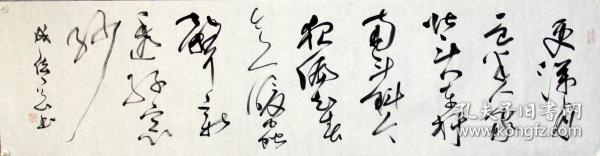 更深月
色半人家
北斗闌干
南斗斜今
夜偏知春
气暖蟲
聲新
透綠窗
紗
书
孔夫子旧书网
kongfz.com